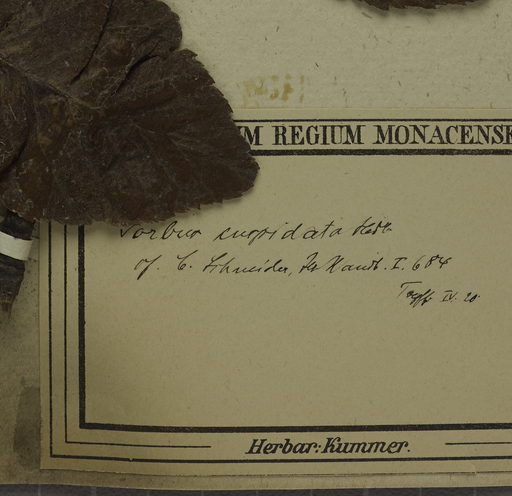 M REGIUM MONACENS
Sorbus cuspidata Hedl.
cf. C. Schneider, Handb. I. 684
IV. 20
Herbar: Kummer.